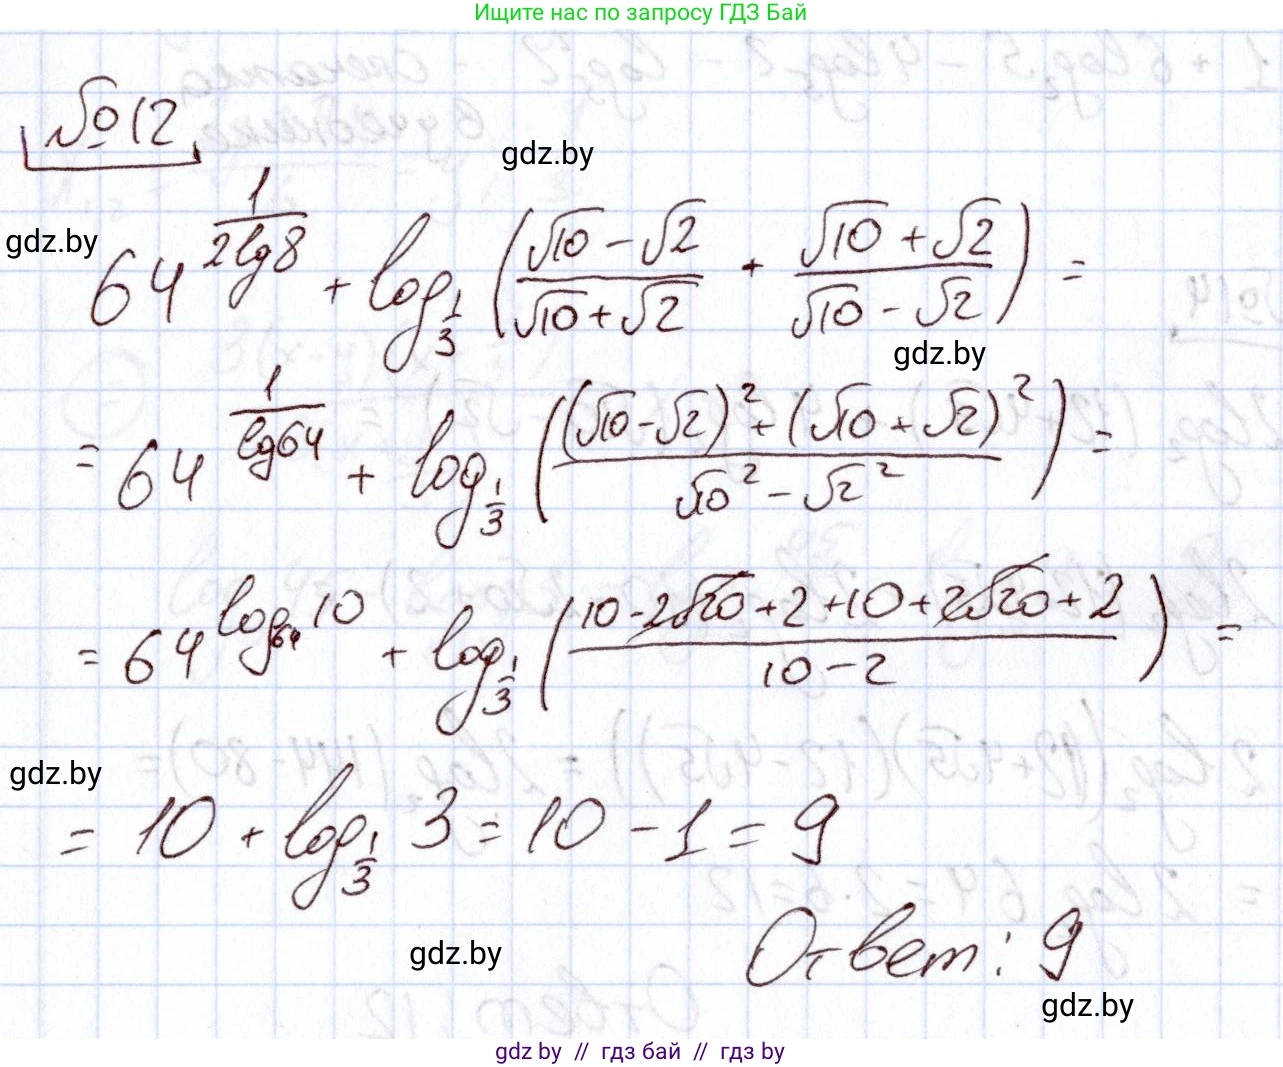 Ищите нас по запросу ГДЗ Бай
№12
gdz.by
gdz.by
64^(1/(2lg8)) + log_(1/3) ((√10 - √2)/(√10 + √2) + (√10 + √2)/(√10 - √2)) =
gdz.by
= 64^(1/lg64) + log_(1/3) (((√10 - √2)² + (√10 + √2)²)/(√10² - √2²)) =
= 64^(log_64 10) + log_(1/3) ((10 - 2√20 + 2 + 10 + 2√20 + 2)/(10 - 2)) =
gdz.by
= 10 + log_(1/3) 3 = 10 - 1 = 9
Ответ: 9
gdz.by
gdz.by
gdz by // гдз бай // гдз by